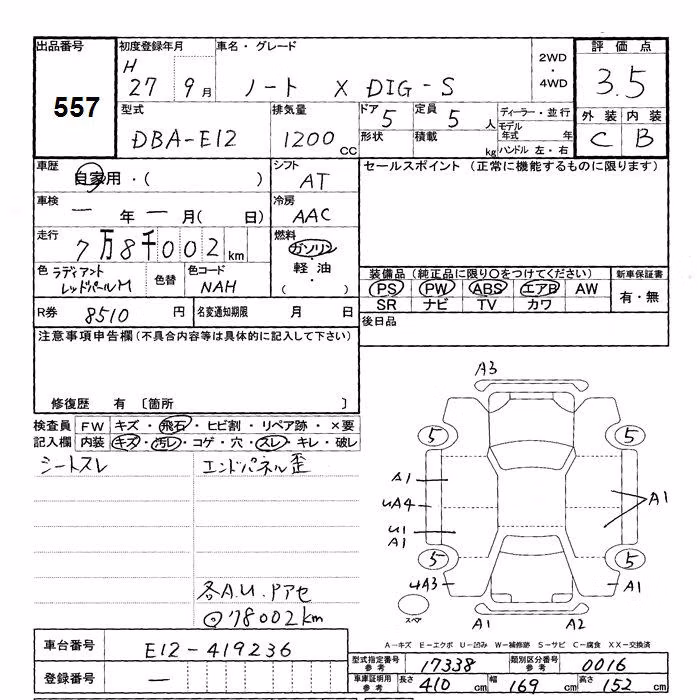 出品番号 初度登録年月 車名・グレード 評価点
557
H 27 9月 ノート X DIG-S 2WD・4WD 3.5
型式 排気量 ドア 定員 ディーラー・並行 外装 内装
DBA-E12 1200 CC 5 5 人 モデル年式 年 C B
形状 積載 kg ハンドル 左・右
車歴 自家用・( ) シフト AT セールスポイント (正常に機能するものに限ります)
車検 一 年 一 月( 日) 冷房 AAC
走行 7万8千002 km 燃料 ガソリン・軽油・( )
色 ラディアントレッドパールM 色替 色コード NAH
装備品 (純正品に限り○をつけてください) 新車保証書
PS PW ABS エアB AW 有・無
SR ナビ TV カワ
R券 8510 円 名変通知期限 月 日 後日品
注意事項申告欄 (不具合内容等は具体的に記入して下さい)
修復歴 有 〔箇所 〕
検査員 FW キズ・飛石・ヒビ割・リペア跡・×要
記入欄 内装 キズ・汚レ・コゲ・穴・スレ・キレ・破レ
シートスレ エンドパネル歪
各A.U.Pアセ
◎78002km
A3
5 5
A1
UA4 A1
U1
A1
5 5
UA3 A1
スペア A1 A2
A-キズ E-エクボ U-凹み W-補修跡 S-サビ C-腐食 XX-交換済
車台番号 E12-419236
型式指定番号 参考 17338 類別区分番号 参考 0016
登録番号 一
車庫証明用 参考 長さ 410 cm 幅 169 cm 高さ 152 cm